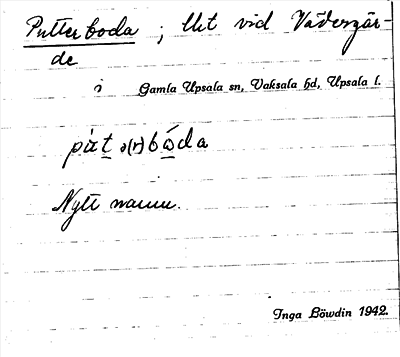 Putterboda ; lht vid Vädersgär-
de
i Gamla Upsala sn, Vaksala hd, Upsala l.
Nytt namn.
Inga Löwdin 1942.